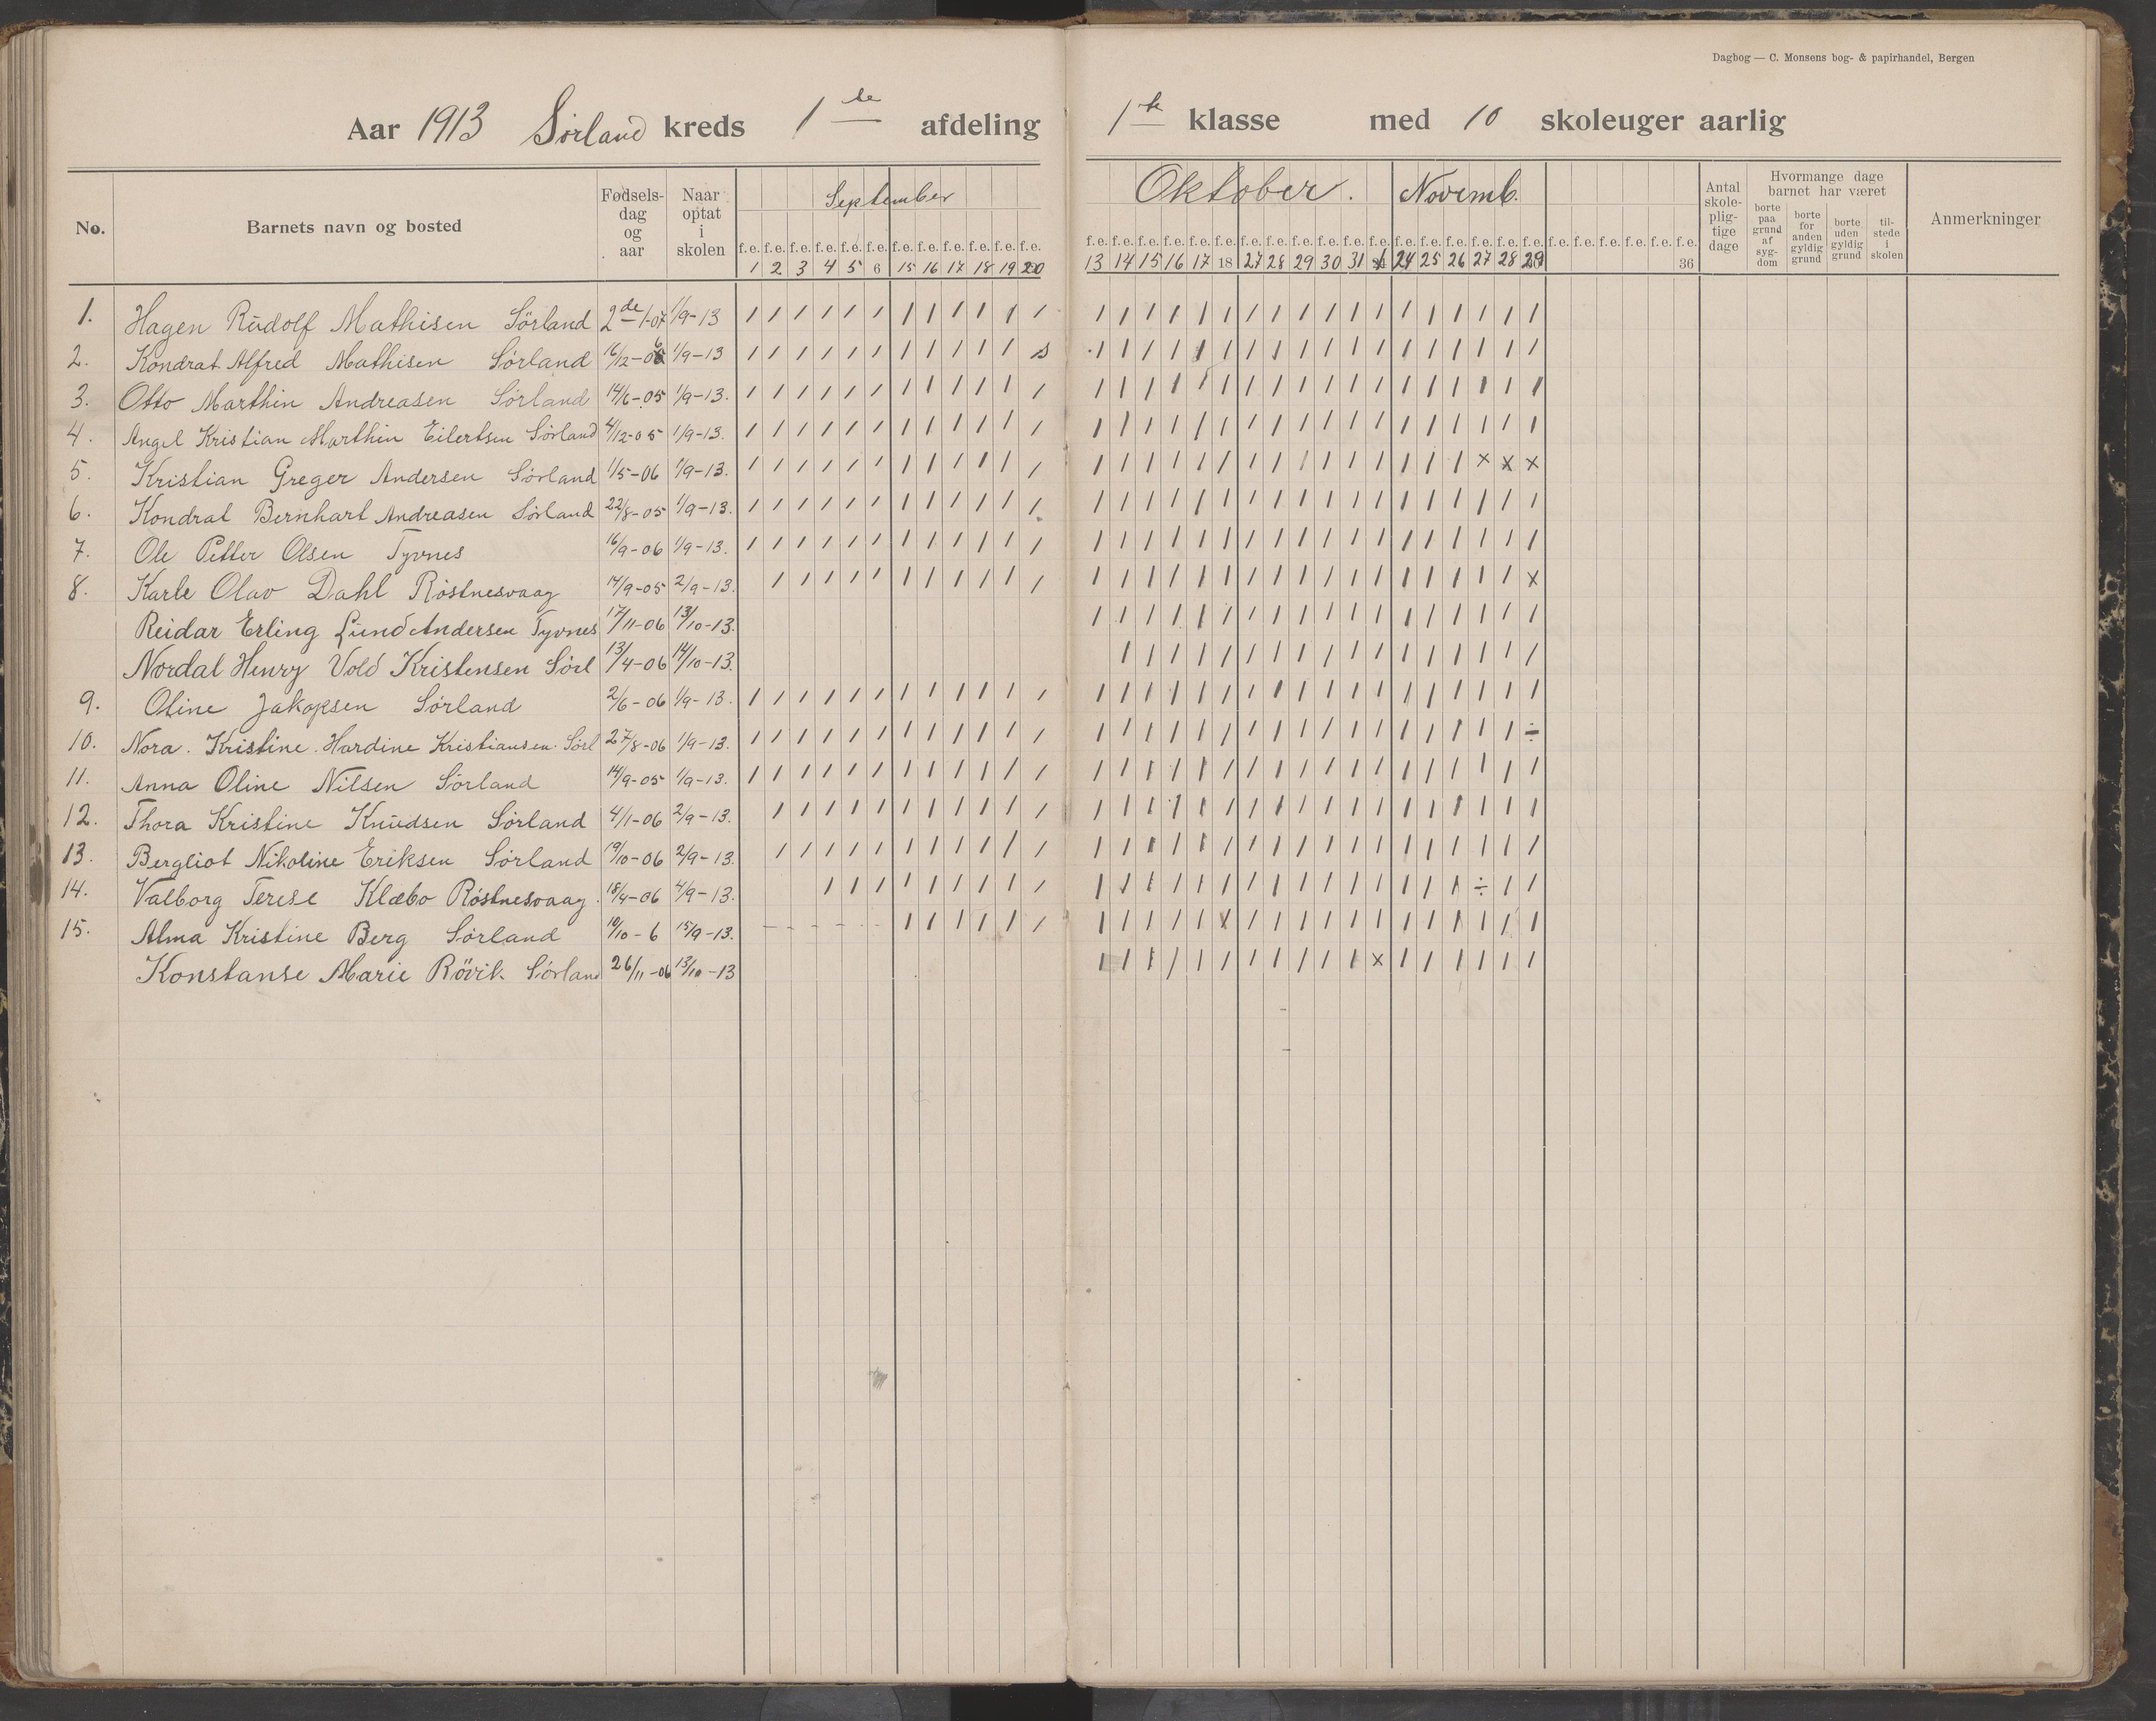 Dagbog — C. Monsens bog- & papirhandel, Bergen
Aar 1913 Sørland kreds 1ste afdeling 1ste klasse med 10 skoleuger aarlig
No. Barnets navn og bosted Fødsels-dag og aar Naar optat i skolen September Oktober. Novemb. Antal skole-plig-tige dage Hvormange dage barnet har været borte paa grund af syg-dom borte for anden gyldig grund borte uden gyldig grund til-stede i skolen Anmerkninger
f.e. f.e. f.e. f.e. f.e. f.e. f.e. f.e. f.e. f.e. f.e. f.e. f.e. f.e. f.e. f.e. f.e. f.e. f.e. f.e. f.e. f.e. f.e. f.e. f.e. f.e. f.e. f.e. f.e. f.e. f.e. f.e. f.e. f.e. f.e. f.e.
1 2 3 4 5 6 15 16 17 18 19 20 13 14 15 16 17 18 27 28 29 30 31 1 24 25 26 27 28 29 36
1. Hagen Rudolf Mathisen Sørland 2de/1-07 1/9-13 / / / / / / / / / / / / / / / / / / / / / / / / / / / / / /
2. Kondrat Alfred Mathisen Sørland 16/12-06 1/9-13 / / / / / / / / / / / s / / / / / / / / / / / / / / / / / /
3. Otto Marthin Andreasen Sørland 14/6-05 1/9-13. / / / / / / / / / / / / / / / / / / / / / / / / / / / / / /
4. Angel Kristian Marthin Eilertsen Sørland 4/12-05 1/9-13. / / / / / / / / / / / / / / / / / / / / / / / / / / / / / /
5. Kristian Greger Andersen Sørland 1/5-06 1/9-13. / / / / / / / / / / / / / / / / / / / / / / / / / / / x x x
6. Kondrat Bernhart Andreasen Sørland 22/8-05 1/9-13. / / / / / / / / / / / / / / / / / / / / / / / / / / / / / /
7. Ole Petter Olsen Tyvnes 16/9-06 1/9-13. / / / / / / / / / / / / / / / / / / / / / / / / / / / / / /
8. Karle Olav Dahl Røstnesvaag 14/9-05 2/9-13. / / / / / / / / / / / / / / / / / / / / / / / / / / / / x
Reidar Erling Lund Andersen Tyvnes 17/11-06 13/10-13. / / / / / / / / / / / / / / / / / /
Nordal Henry Vold Kristensen Sørl 13/4-06 14/10-13. / / / / / / / / / / / / / / / / /
9. Oline Jakopsen Sørland 2/6-06 1/9-13. / / / / / / / / / / / / / / / / / / / / / / / / / / / / / /
10. Nora. Kristine. Hardine Kristiansen. Sørl 27/8-06 1/9-13. / / / / / / / / / / / / / / / / / / / / / / / / / / / / / ÷
11. Anna Oline Nilsen Sørland 14/9-05 1/9-13. / / / / / / / / / / / / / / / / / / / / / / / / / / / / / /
12. Thora Kristine Knudsen Sørland 4/1-06 2/9-13. / / / / / / / / / / / / / / / / / / / / / / / / / / / / /
13. Bergliot Nikoline Eriksen Sørland 19/10-06 2/9-13. / / / / / / / / / / / / / / / / / / / / / / / / / / / / /
14. Valborg Terese Klæbo Røstnesvaag. 18/4-06 4/9-13. / / / / / / / / / / / / / / / / / / / / / / / / ÷ / /
15. Alma Kristine Berg Sørland 10/10-6 15/9-13. - - - - - / / / / / / / / / / / x / / / / / / / / / / / /
Konstanse Marie Rövik. Sørland 26/11-06 13/10-13 / / / / / / / / / / / x / / / / / /